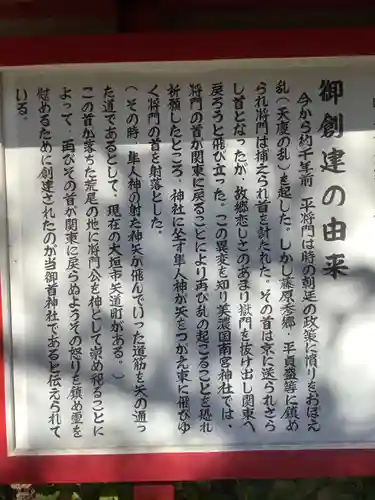 御創建の由来
今から約千年前、平将門は時の朝廷の政策に憤りをおぼえ
乱(天慶の乱)を起した。しかし藤原秀郷、平貞盛等に鎮め
られ将門は捕えられ首を討たれた。その首は京に送られさら
し首となったが、故郷恋しさのあまり獄門を抜け出し関東へ
戻ろうと飛び立った。この異変を知り美濃国南宮神社では、
将門の首が関東に戻ることにより再び乱の起こることを恐れ
祈願したところ、神社に坐す隼人神が矢をつがえ東に飛びゆ
く将門の首を射落とした。
(その時、隼人神の射た神矢が飛んでいった道筋を矢の通っ
た道であるとして、現在の大垣市矢道町がある。)
この首が落ちた荒尾の地に将門公を神として崇め祀ることに
よって、再びその首が関東に戻らぬようその怒りを鎮め霊を
慰めるために創建されたのが当御首神社であると伝えられて
いる。